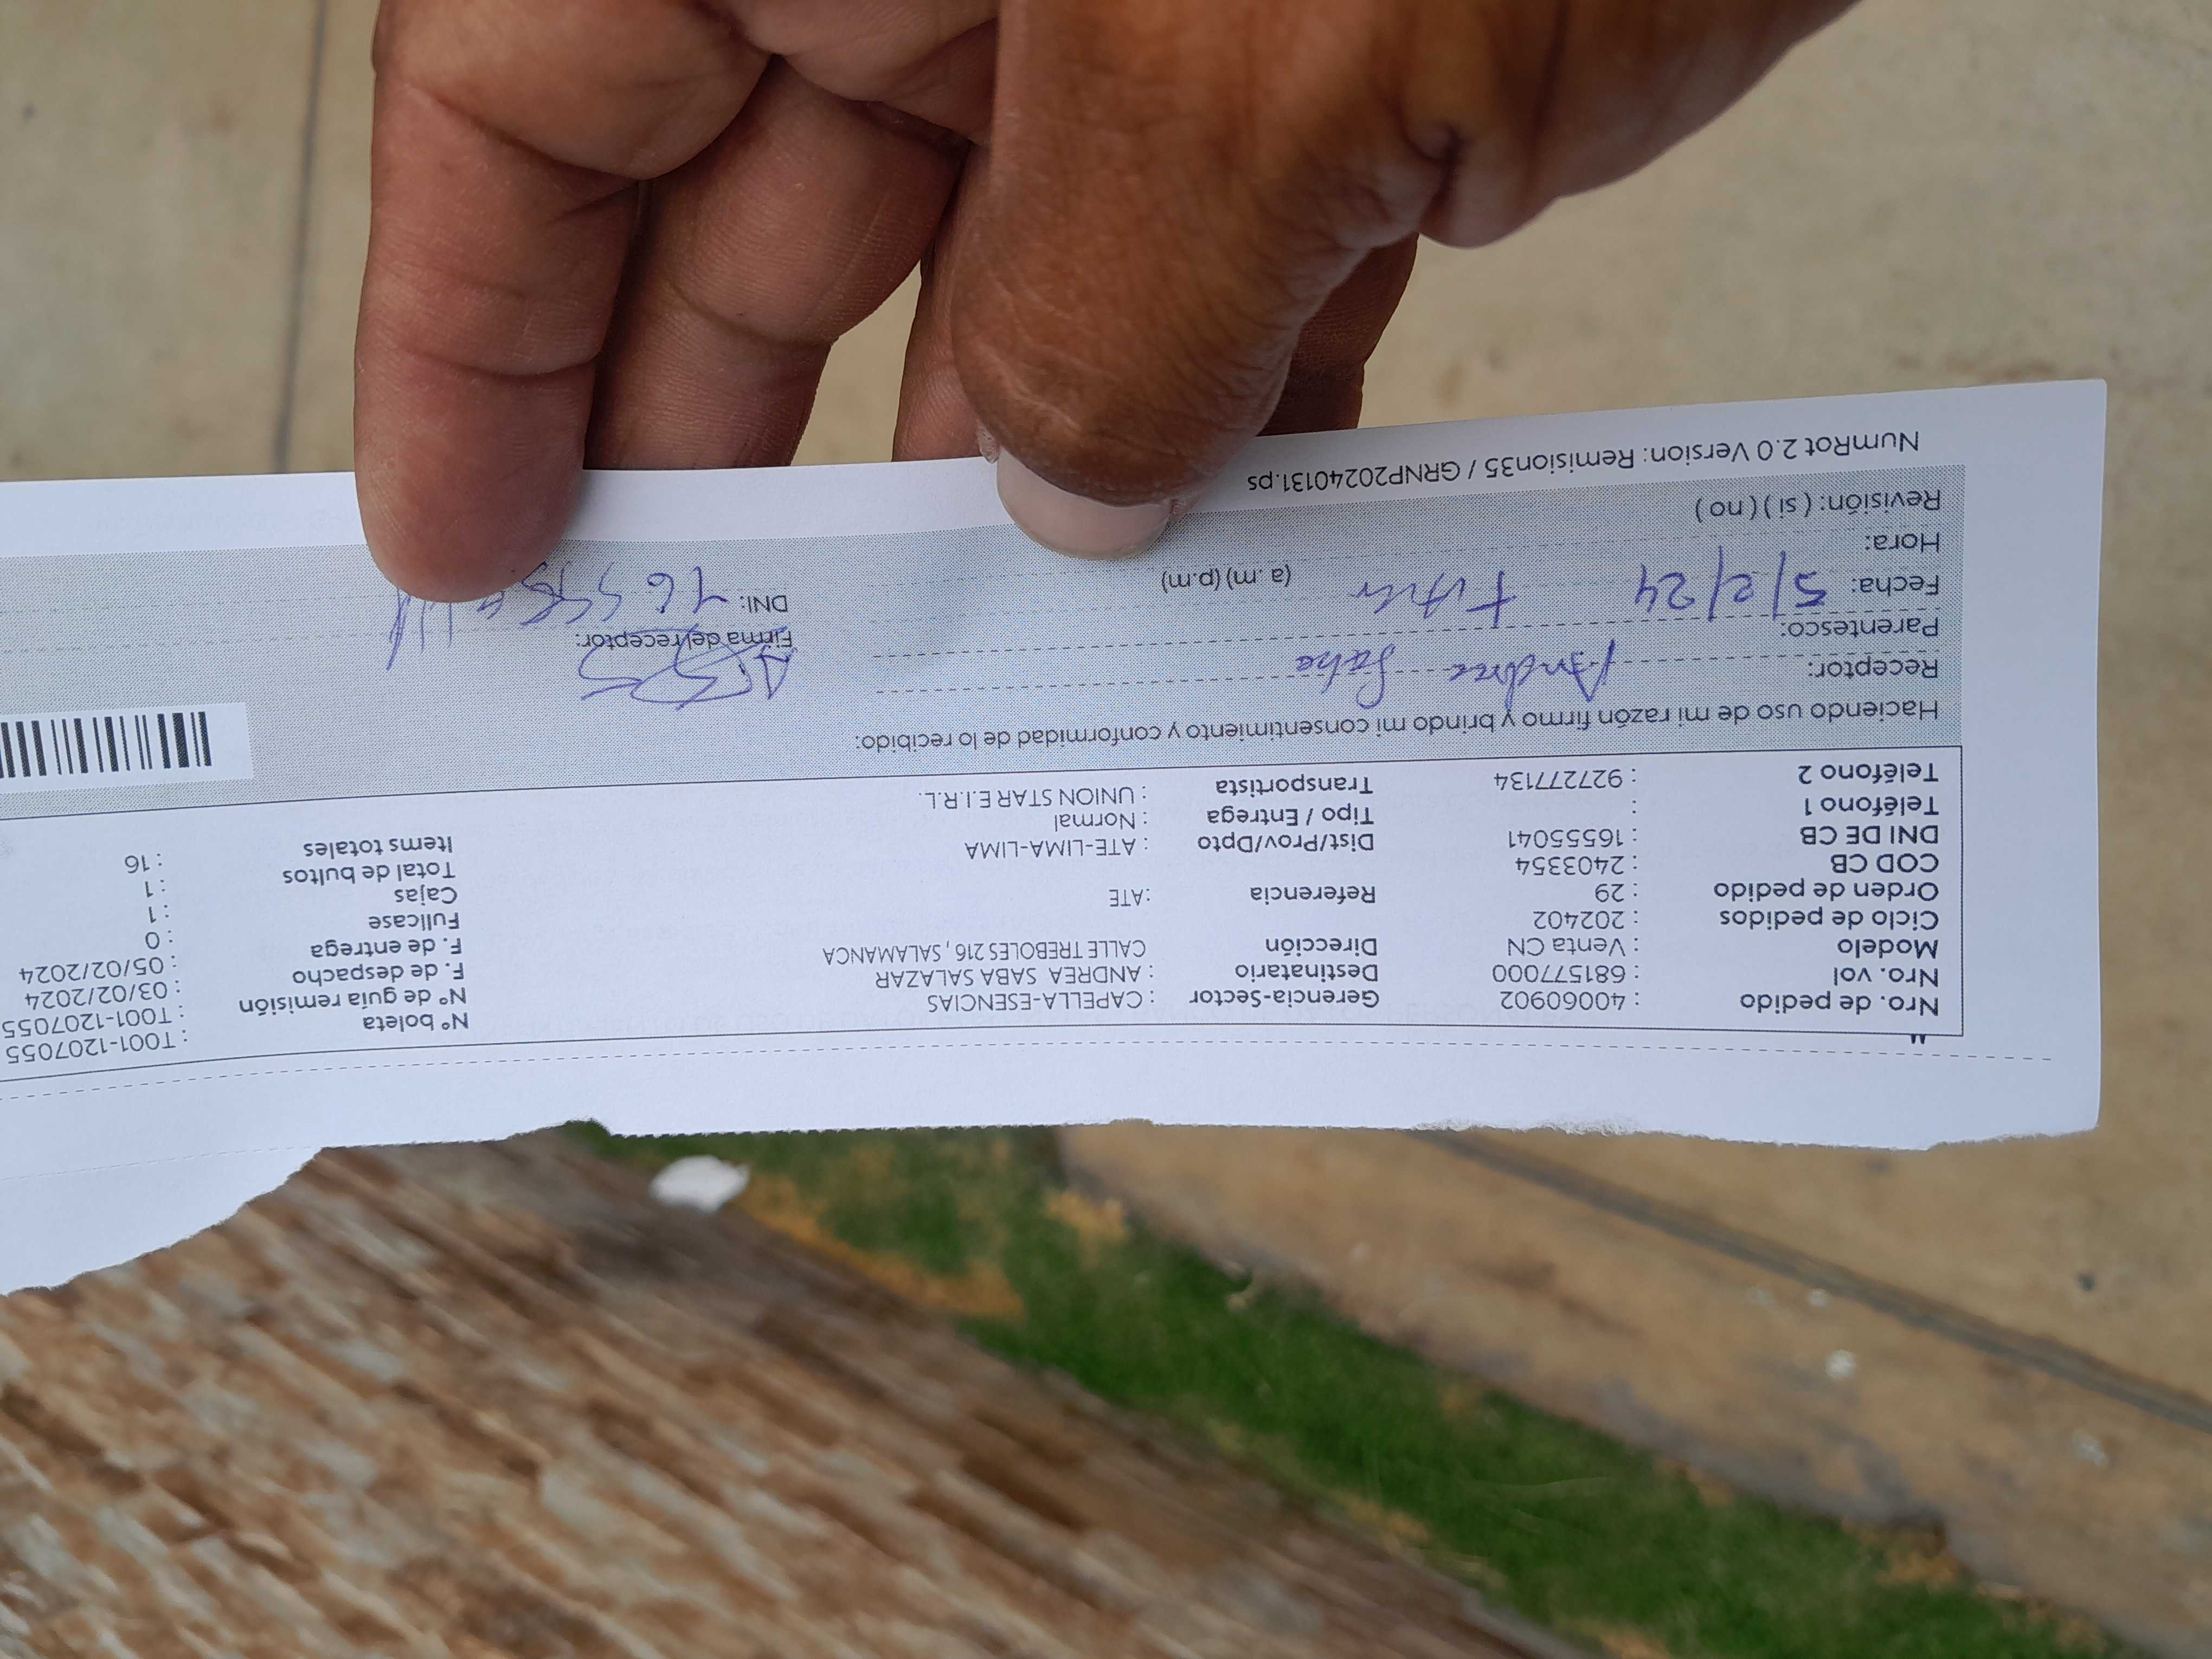 Nro. de pedido : 40060902 Gerencia-Sector : CAPELLA-ESENCIAS Nº boleta : T001-1207055
Nro. vol : 681577000 Destinatario : ANDREA SABA SALAZAR Nº de guía remisión : T001-1207055
Modelo : Venta CN Dirección CALLE TREBOLES 216 , SALAMANCA F. de despacho : 03/02/2024
Ciclo de pedidos : 202402 F. de entrega : 05/02/2024
Orden de pedido : 29 Referencia :ATE Fullcase : 0
COD CB : 2403354 Cajas : 1
DNI DE CB : 16555041 Dist/Prov/Dpto : ATE-LIMA-LIMA Total de bultos : 1
Teléfono 1 : Tipo / Entrega : Normal Items totales : 16
Teléfono 2 : 927277134 Transportista : UNION STAR E.I.R.L.
Haciendo uso de mi razón firmo y brindo mi consentimiento y conformidad de lo recibido:
Receptor: Andrea Saba
Parentesco: Firma del receptor:
Fecha: 5/2/24 DNI:
Hora: (a. m) (p.m)
Revisión: ( si ) ( no )
NumRot 2.0 Version: Remision35 / GRNP20240131.ps